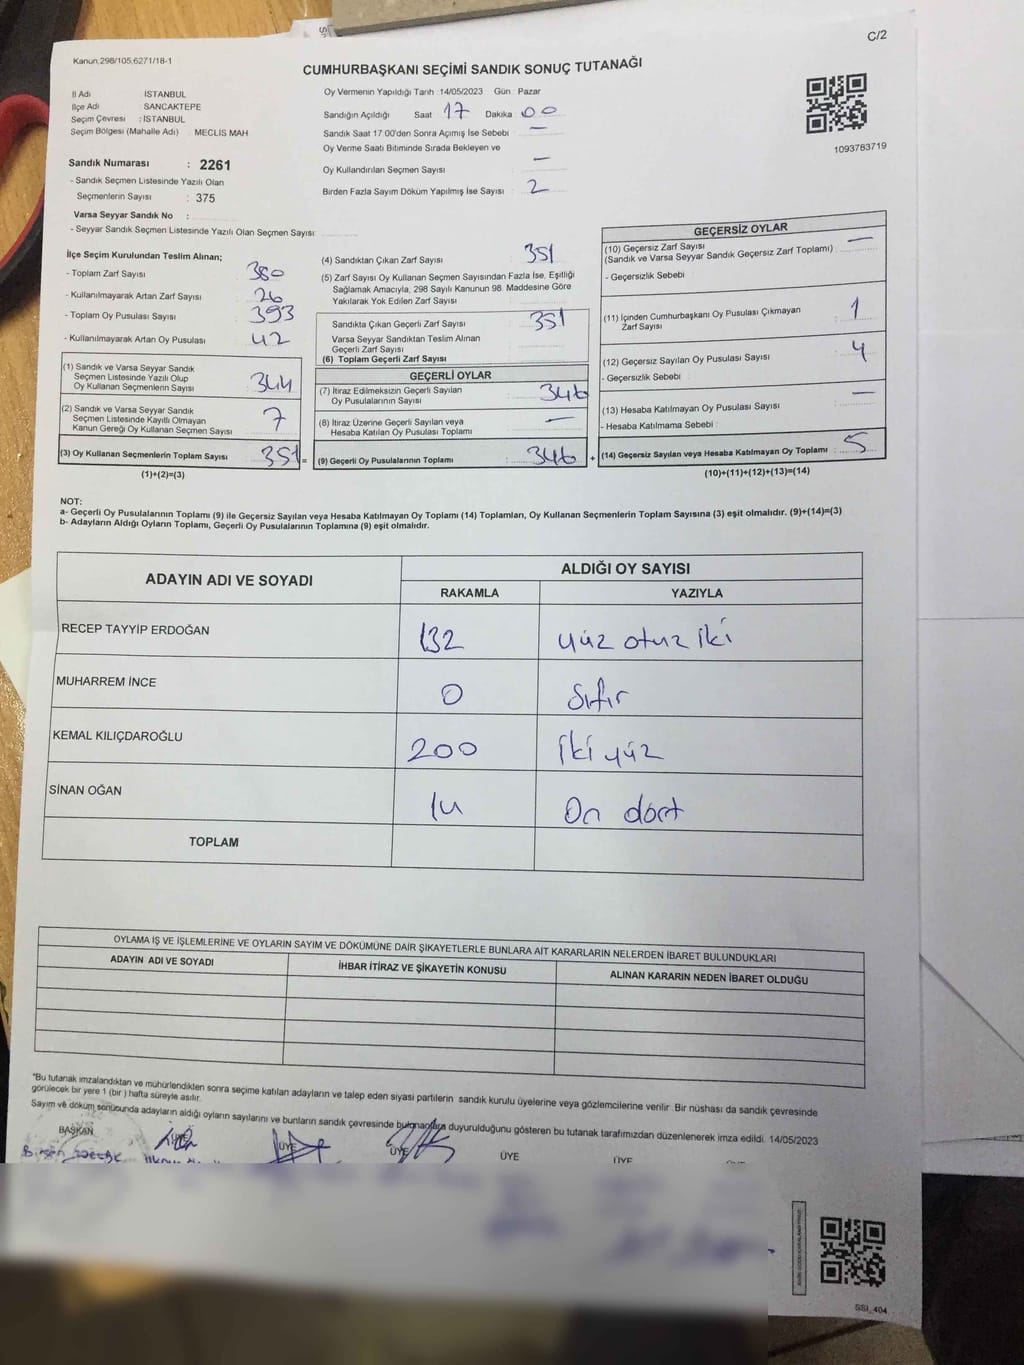 C/2
Kanun,298/105,6271/18-1
CUMHURBAŞKANI SEÇİMİ SANDIK SONUÇ TUTANAĞI
İl Adı İSTANBUL
İlçe Adı SANCAKTEPE
Seçim Çevresi : İSTANBUL
Seçim Bölgesi (Mahalle Adı) MECLIS MAH
Sandık Numarası : 2261
- Sandık Seçmen Listesinde Yazılı Olan
Seçmenlerin Sayısı : 375
Varsa Seyyar Sandık No :
- Seyyar Sandık Seçmen Listesinde Yazılı Olan Seçmen Sayısı:
Oy Vermenin Yapıldığı Tarih :14/05/2023 Gün : Pazar
Sandığın Açıldığı Saat 17 Dakika 00
Sandık Saat 17:00'den Sonra Açımış İse Sebebi : —
Oy Verme Saati Bitiminde Sırada Bekleyen ve
Oy Kullandırılan Seçmen Sayısı —
Birden Fazla Sayım Döküm Yapılmış İse Sayısı : 2
1093783719
İlçe Seçim Kurulundan Teslim Alınan;
- Toplam Zarf Sayısı : 380
- Kullanılmayarak Artan Zarf Sayısı : 26
- Toplam Oy Pusulası Sayısı : 393
- Kullanılmayarak Artan Oy Pusulası : 42
(1) Sandık ve Varsa Seyyar Sandık
Seçmen Listesinde Yazılı Olup
Oy Kullanan Seçmenlerin Sayısı : 344
(2) Sandık ve Varsa Seyyar Sandık
Seçmen Listesinde Kayıtlı Olmayan
Kanun Gereği Oy Kullanan Seçmen Sayısı : 7
(3) Oy Kullanan Seçmenlerin Toplam Sayısı : 351 =
(1)+(2)=(3)
(4) Sandıktan Çıkan Zarf Sayısı : 351
(5) Zarf Sayısı Oy Kullanan Seçmen Sayısından Fazla İse, Eşitliği
Sağlamak Amacıyla, 298 Sayılı Kanunun 98. Maddesine Göre
Yakılarak Yok Edilen Zarf Sayısı :
Sandıkta Çıkan Geçerli Zarf Sayısı : 351
Varsa Seyyar Sandıktan Teslim Alınan
Geçerli Zarf Sayısı :
(6) Toplam Geçerli Zarf Sayısı :
GEÇERLİ OYLAR
(7) İtiraz Edilmeksizin Geçerli Sayılan
Oy Pusulalarının Sayısı : 346
(8) İtiraz Üzerine Geçerli Sayılan veya
Hesaba Katılan Oy Pusulası Toplamı : —
(9) Geçerli Oy Pusulalarının Toplamı : 346 +
GEÇERSİZ OYLAR
(10) Geçersiz Zarf Sayısı : —
(Sandık ve Varsa Seyyar Sandık Geçersiz Zarf Toplamı)
- Geçersizlik Sebebi :
(11) İçinden Cumhurbaşkanı Oy Pusulası Çıkmayan
Zarf Sayısı : 1
(12) Geçersiz Sayılan Oy Pusulası Sayısı : 4
- Geçersizlik Sebebi :
(13) Hesaba Katılmayan Oy Pusulası Sayısı : —
- Hesaba Katılmama Sebebi :
(14) Geçersiz Sayılan veya Hesaba Katılmayan Oy Toplamı : 5
(10)+(11)+(12)+(13)=(14)
NOT:
a- Geçerli Oy Pusulalarının Toplamı (9) ile Geçersiz Sayılan veya Hesaba Katılmayan Oy Toplamı (14) Toplamları, Oy Kullanan Seçmenlerin Toplam Sayısına (3) eşit olmalıdır. (9)+(14)=(3)
b- Adayların Aldığı Oyların Toplamı, Geçerli Oy Pusulalarının Toplamına (9) eşit olmalıdır.
ADAYIN ADI VE SOYADI ALDIĞI OY SAYISI
RAKAMLA YAZIYLA
RECEP TAYYİP ERDOĞAN 132 yüz otuz iki
MUHARREM İNCE 0 Sıfır
KEMAL KILIÇDAROĞLU 200 iki yüz
SİNAN OĞAN 14 On dört
TOPLAM
OYLAMA İŞ VE İŞLEMLERİNE VE OYLARIN SAYIM VE DÖKÜMÜNE DAİR ŞİKAYETLERLE BUNLARA AİT KARARLARIN NELERDEN İBARET BULUNDUKLARI
ADAYIN ADI VE SOYADI İHBAR İTİRAZ VE ŞİKAYETİN KONUSU ALINAN KARARIN NEDEN İBARET OLDUĞU
*Bu tutanak imzalandıktan ve mühürlendikten sonra seçime katılan adayların ve talep eden siyasi partilerin sandık kurulu üyelerine veya gözlemcilerine verilir. Bir nüshası da sandık çevresinde
görülecek bir yere 1 (bir ) hafta süreyle asılır.
Sayım ve döküm sonucunda adayların aldığı oyların sayılarını ve bunların sandık çevresinde duyurulduğunu gösteren bu tutanak tarafımızdan düzenlenerek imza edildi. 14/05/2023
BAŞKAN ÜYE ÜYE ÜYE ÜYE ÜYE
SSI_404